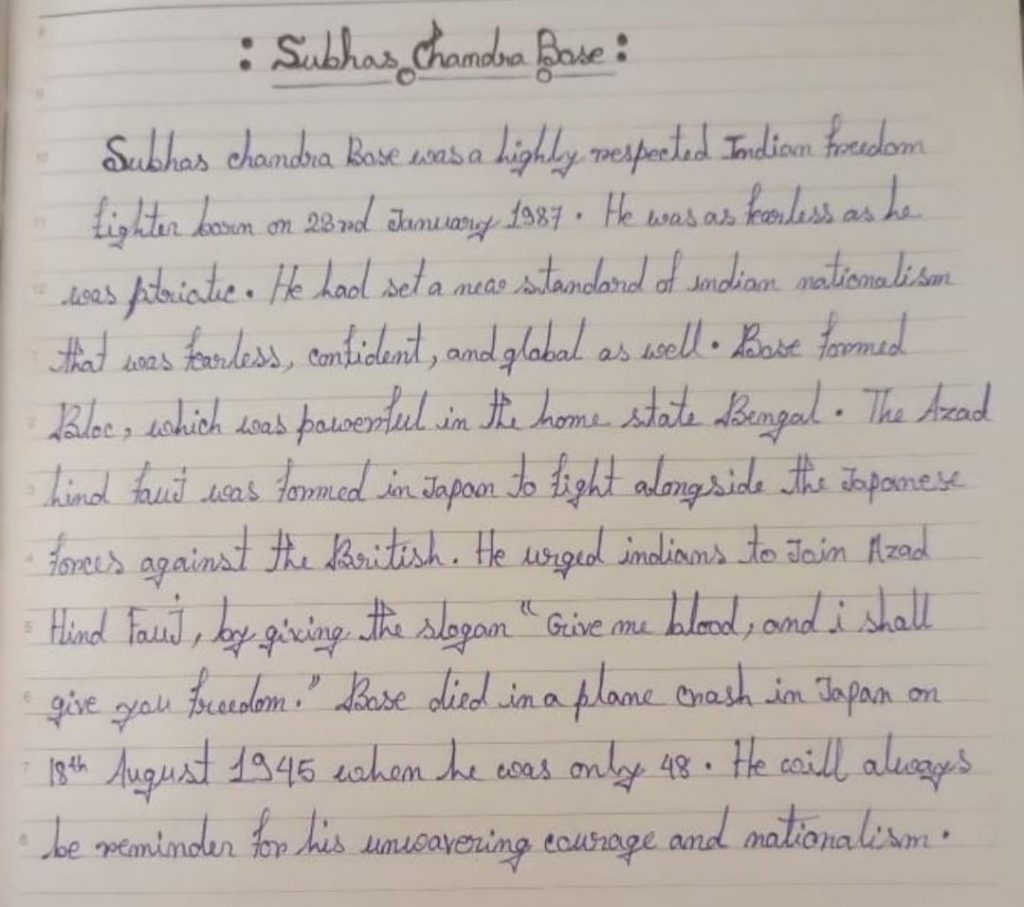 : Subhas Chandra Bose :
Subhas chandra Bose was a highly respected Indian freedom
fighter born on 23rd January 1987. He was as fearless as he
was ptriotic. He had set a new standard of indian nationalism
that was fearless, confident, and global as well. Bose formed
Bloc, which was powerful in the home state Bengal. The Azad
hind fauj was formed in Japan to fight alongside the Japanese
forces against the British. He urged indians to Join Azad
Hind Fauj, by giving the slogan "Give me blood, and i shall
give you freedom." Bose died in a plane crash in Japan on
18th August 1945 when he was only 48. He will always
be reminder for his unwavering courage and nationalism.